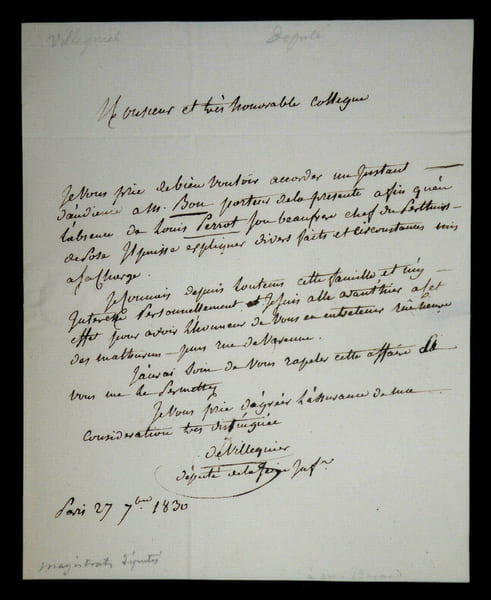 Villequier Député
Monsieur et très honorable collegue
Je Vous prie de bien Vouloir accorder un Instant
d'audience a M. Bon porteur de la presente afin qu'en
l'absence de Louis Perrot son beaufrere chef du
de Pose Il puisse expliquer divers faits et circonstances mis
a sa Charge.
Je Connais depuis longtems cette famille et m'y
Interesse Personnellement. et Je suis allé avant hier a cet
effet pour avoir l'honneur de Vous en entretenir rue
des mathurins puis rue de Varenne.
J'aurai Soin de Vous rapeler cette affaire Si
vous me le Permettez
Je Vous prie d'agréer l'assurance de ma
Consideration tres distinguée
de Villequier
député de la Seine Infre
Paris 27 7bre 1830
magistrats Députés